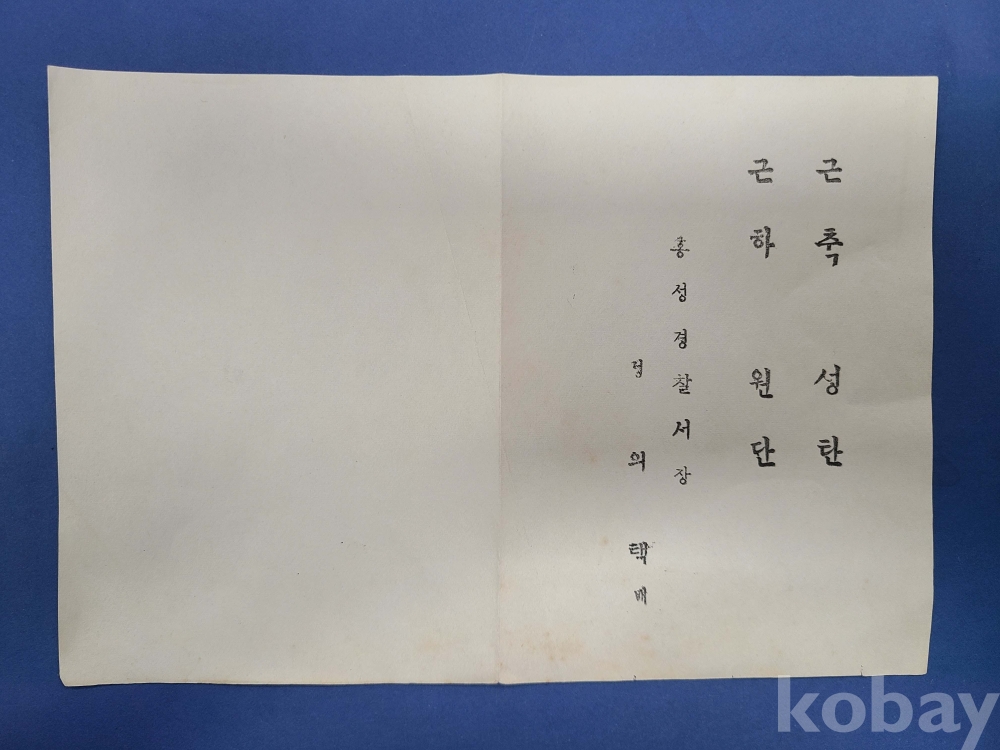 근축 성탄
근하 원단
홍성경찰서장
정의택 배
kobay